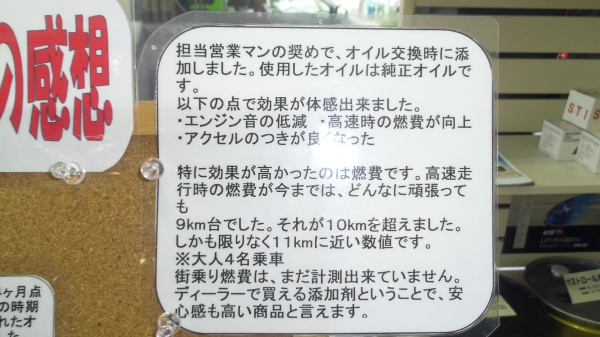 の感想
担当営業マンの奨めで、オイル交換時に添
加しました。使用したオイルは純正オイルで
す。
以下の点で効果が体感出来ました。
・エンジン音の低減　・高速時の燃費が向上
・アクセルのつきが良くなった
特に効果が高かったのは燃費です。高速走
行時の燃費が今までは、どんなに頑張って
も
9km台でした。それが10kmを超えました。
しかも限りなく11kmに近い数値です。
※大人4名乗車
街乗り燃費は、まだ計測出来ていません。
ディーラーで買える添加剤ということで、安
心感も高い商品と言えます。
ヶ月点
の時期
れたオ
STI
elf
カストロール